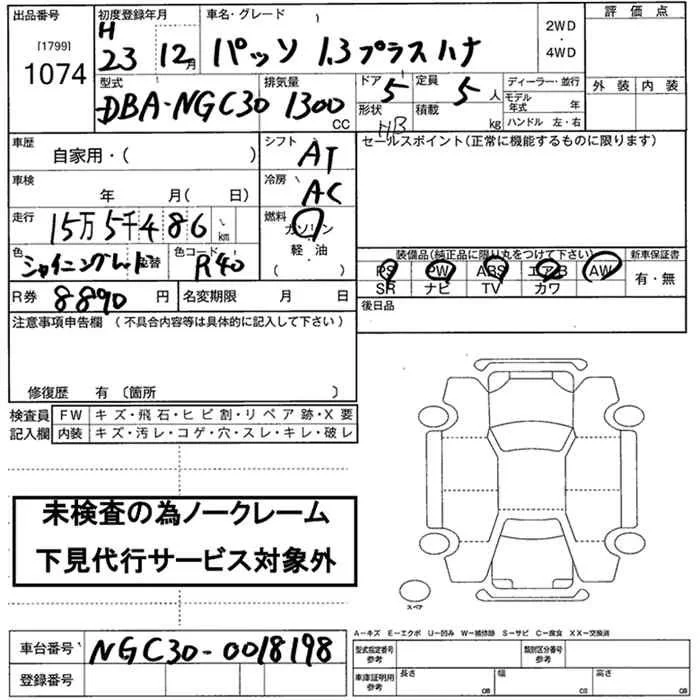 出品番号 初度登録年月 車名・グレード 評価点
[1799] H
1074 23 12月 パッソ 1.3プラスハナ 2WD・4WD
外装 内装
型式 排気量 ドア 5 定員 5人 ディーラー・並行
DBA-NGC30 1300CC 形状 HB 積載 kg モデル年式 年
ハンドル 左・右
車歴 シフト セールスポイント(正常に機能するものに限ります)
自家用・( ) AT
車検 冷房
年 月( 日) AC
走行 15万5千486km 燃料
ガソリン
軽・油
( )
色 シャイニングレッド 色替 色コード R40
装備品(純正品に限り丸をつけて下さい) 新車保証書
PS PW ABS エアB AW 有・無
SR ナビ TV カワ
R券 8890円 名変期限 月 日 後日品
注意事項申告欄 (不具合内容等は具体的に記入して下さい)
修復歴 有 〔箇所 〕
検査員 FW キズ・飛石・ヒビ割・リペア跡・X要
記入欄 内装 キズ・汚レ・コゲ・穴・スレ・キレ・破レ
未検査の為ノークレーム
下見代行サービス対象外
スペア
A-キズ E-エクボ U-凹み W-補修跡 S-サビ C-腐食 XX-交換済
車台番号 NGC30-0018198 型式指定番号 参考 類別区分番号
登録番号 車庫証明用 参考 長さ cm 幅 cm 高さ cm